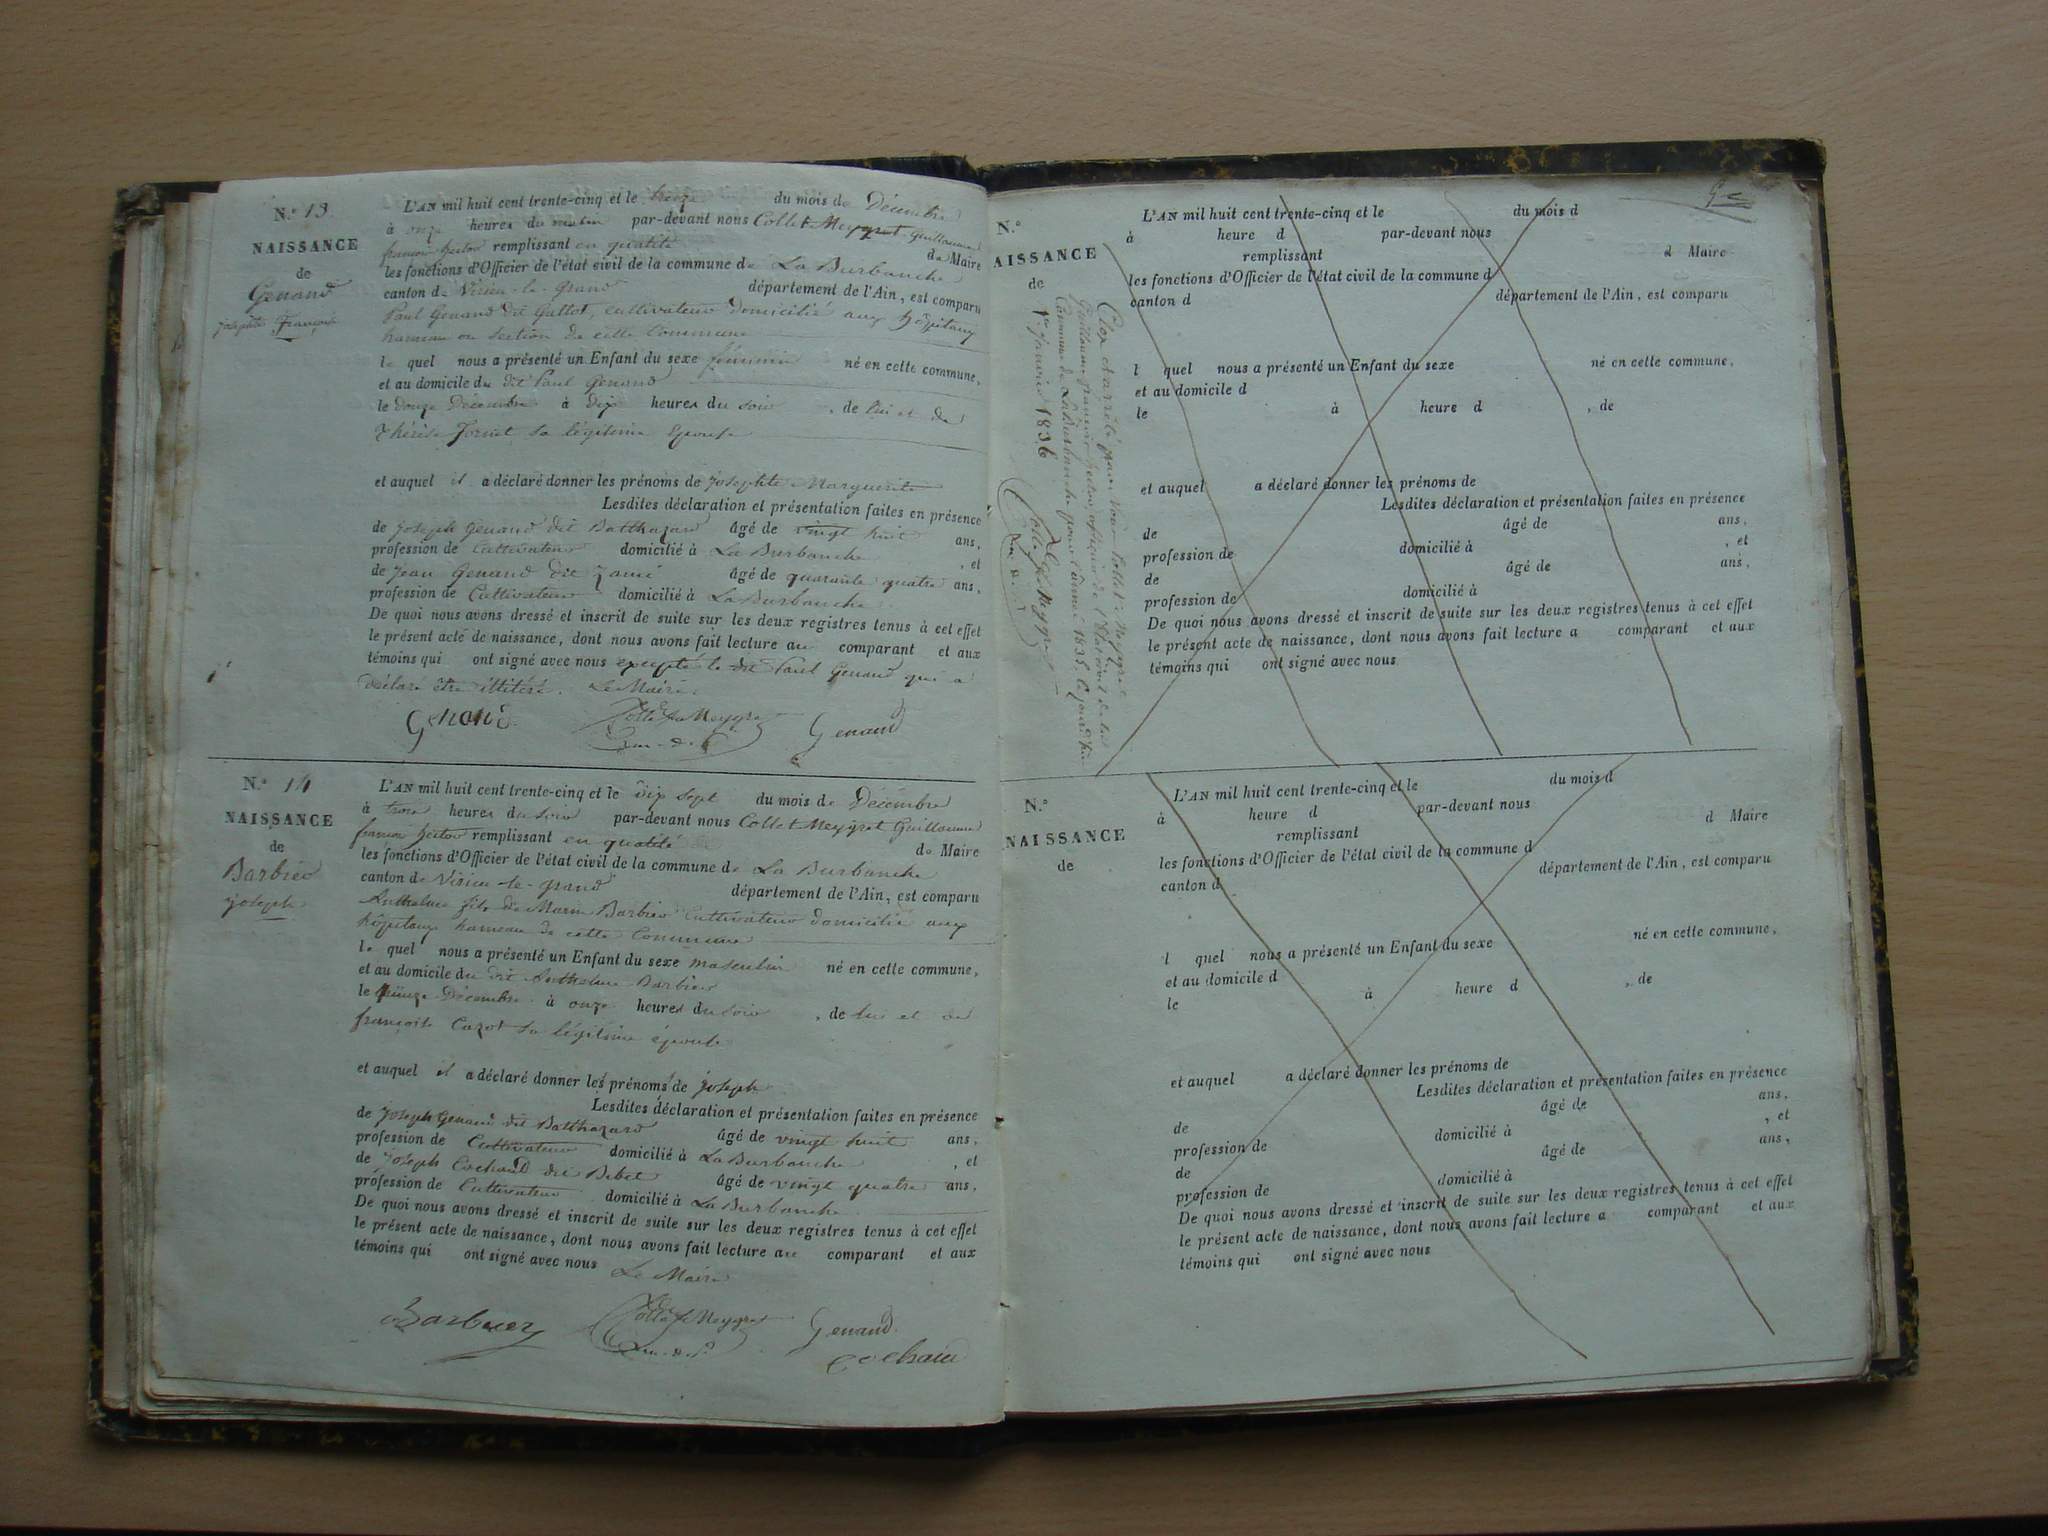 N.° 13
NAISSANCE
de
Genand
Josephte Françoise
L'AN mil huit cent trente-cinq et le treize du mois de Décembre
à onze heures du matin par-devant nous Collet-Meygret Guillaume
françois hector remplissant en qualité de Maire
les fonctions d'Officier de l'état civil de la commune de La Burbanche
canton de Virieu-le-grand département de l'Ain, est comparu
Paul Genand dit Guttot, cultivateur domicilié aux hôpitaux
hameau ou section de cette Commune
le quel nous a présenté un Enfant du sexe féminin né en cette commune,
et au domicile du dit Paul Genand
le douze Décembre à dix heures du soir, de lui et de
Thérèse Fornet sa légitime Epouse
et auquel il a déclaré donner les prénoms de Josephte Marguerite
Lesdites déclaration et présentation faites en présence
de Joseph Genand dit Balthazard âgé de vingt huit ans,
profession de Cultivateur domicilié à La Burbanche, et
de Jean Genand dit Jamé âgé de quarante quatre ans,
profession de Cultivateur domicilié à La Burbanche.
De quoi nous avons dressé et inscrit de suite sur les deux registres tenus à cet effet
le présent acte de naissance, dont nous avons fait lecture au comparant et aux
témoins qui ont signé avec nous excepté le dit Paul Genand qui a
déclaré être illitéré. Le Maire.
Genand Collet Meygret Genand
N.° 14
NAISSANCE
de
Barbier
joseph
L'AN mil huit cent trente-cinq et le dix sept du mois de Décembre
à trois heures du soir par-devant nous Collet-Meygret Guillaume
françois hector remplissant en qualité de Maire
les fonctions d'Officier de l'état civil de la commune de La Burbanche
canton de Virieu-le-grand département de l'Ain, est comparu
Anthelme fils de Marin Barbier Cultivateur domicilié aux
hôpitaux hameau de cette Commune
le quel nous a présenté un Enfant du sexe masculin né en cette commune,
et au domicile du dit Anthelme Barbier
le quinze Décembre à onze heures du soir, de lui et de
françoise Cazot sa légitime épouse
et auquel il a déclaré donner les prénoms de joseph
Lesdites déclaration et présentation faites en présence
de Joseph Genand dit Balthazard âgé de vingt huit ans,
profession de Cultivateur domicilié à La Burbanche, et
de Joseph Cochand dit Bebet âgé de vingt quatre ans,
profession de Cultivateur domicilié à La Burbanche
De quoi nous avons dressé et inscrit de suite sur les deux registres tenus à cet effet
le présent acte de naissance, dont nous avons fait lecture au comparant et aux
témoins qui ont signé avec nous
Le Maire
Barbier Collet Meygret Genand
Cochaud
N.°
AISSANCE
de
Clos et arrêté par Nous Collet-Meygret
Guillaume françois hector, officier de l'Etat civil de la
Commune de La Burbanche pour l'année 1835 ce jourd'hui
1er Janvier 1836
Collet Meygret
L'AN mil huit cent trente-cinq et le du mois d
à heure d par-devant nous
remplissant d Maire
les fonctions d'Officier de l'état civil de la commune d
canton d département de l'Ain, est comparu
l quel nous a présenté un Enfant du sexe né en cette commune,
et au domicile d
le à heure d, de
et auquel a déclaré donner les prénoms de
Lesdites déclaration et présentation faites en présence
de âgé de ans,
profession de domicilié à, et
de âgé de ans,
profession de domicilié à
De quoi nous avons dressé et inscrit de suite sur les deux registres tenus à cet effet
le présent acte de naissance, dont nous avons fait lecture a comparant et aux
témoins qui ont signé avec nous
N.°
NAISSANCE
de
L'AN mil huit cent trente-cinq et le du mois d
à heure d par-devant nous
remplissant d Maire
les fonctions d'Officier de l'état civil de la commune d
canton d département de l'Ain, est comparu
l quel nous a présenté un Enfant du sexe né en cette commune,
et au domicile d
le à heure d, de
et auquel a déclaré donner les prénoms de
Lesdites déclaration et présentation faites en présence
de âgé de ans,
profession de domicilié à, et
de âgé de ans,
profession de domicilié à
De quoi nous avons dressé et inscrit de suite sur les deux registres tenus à cet effet
le présent acte de naissance, dont nous avons fait lecture a comparant et aux
témoins qui ont signé avec nous